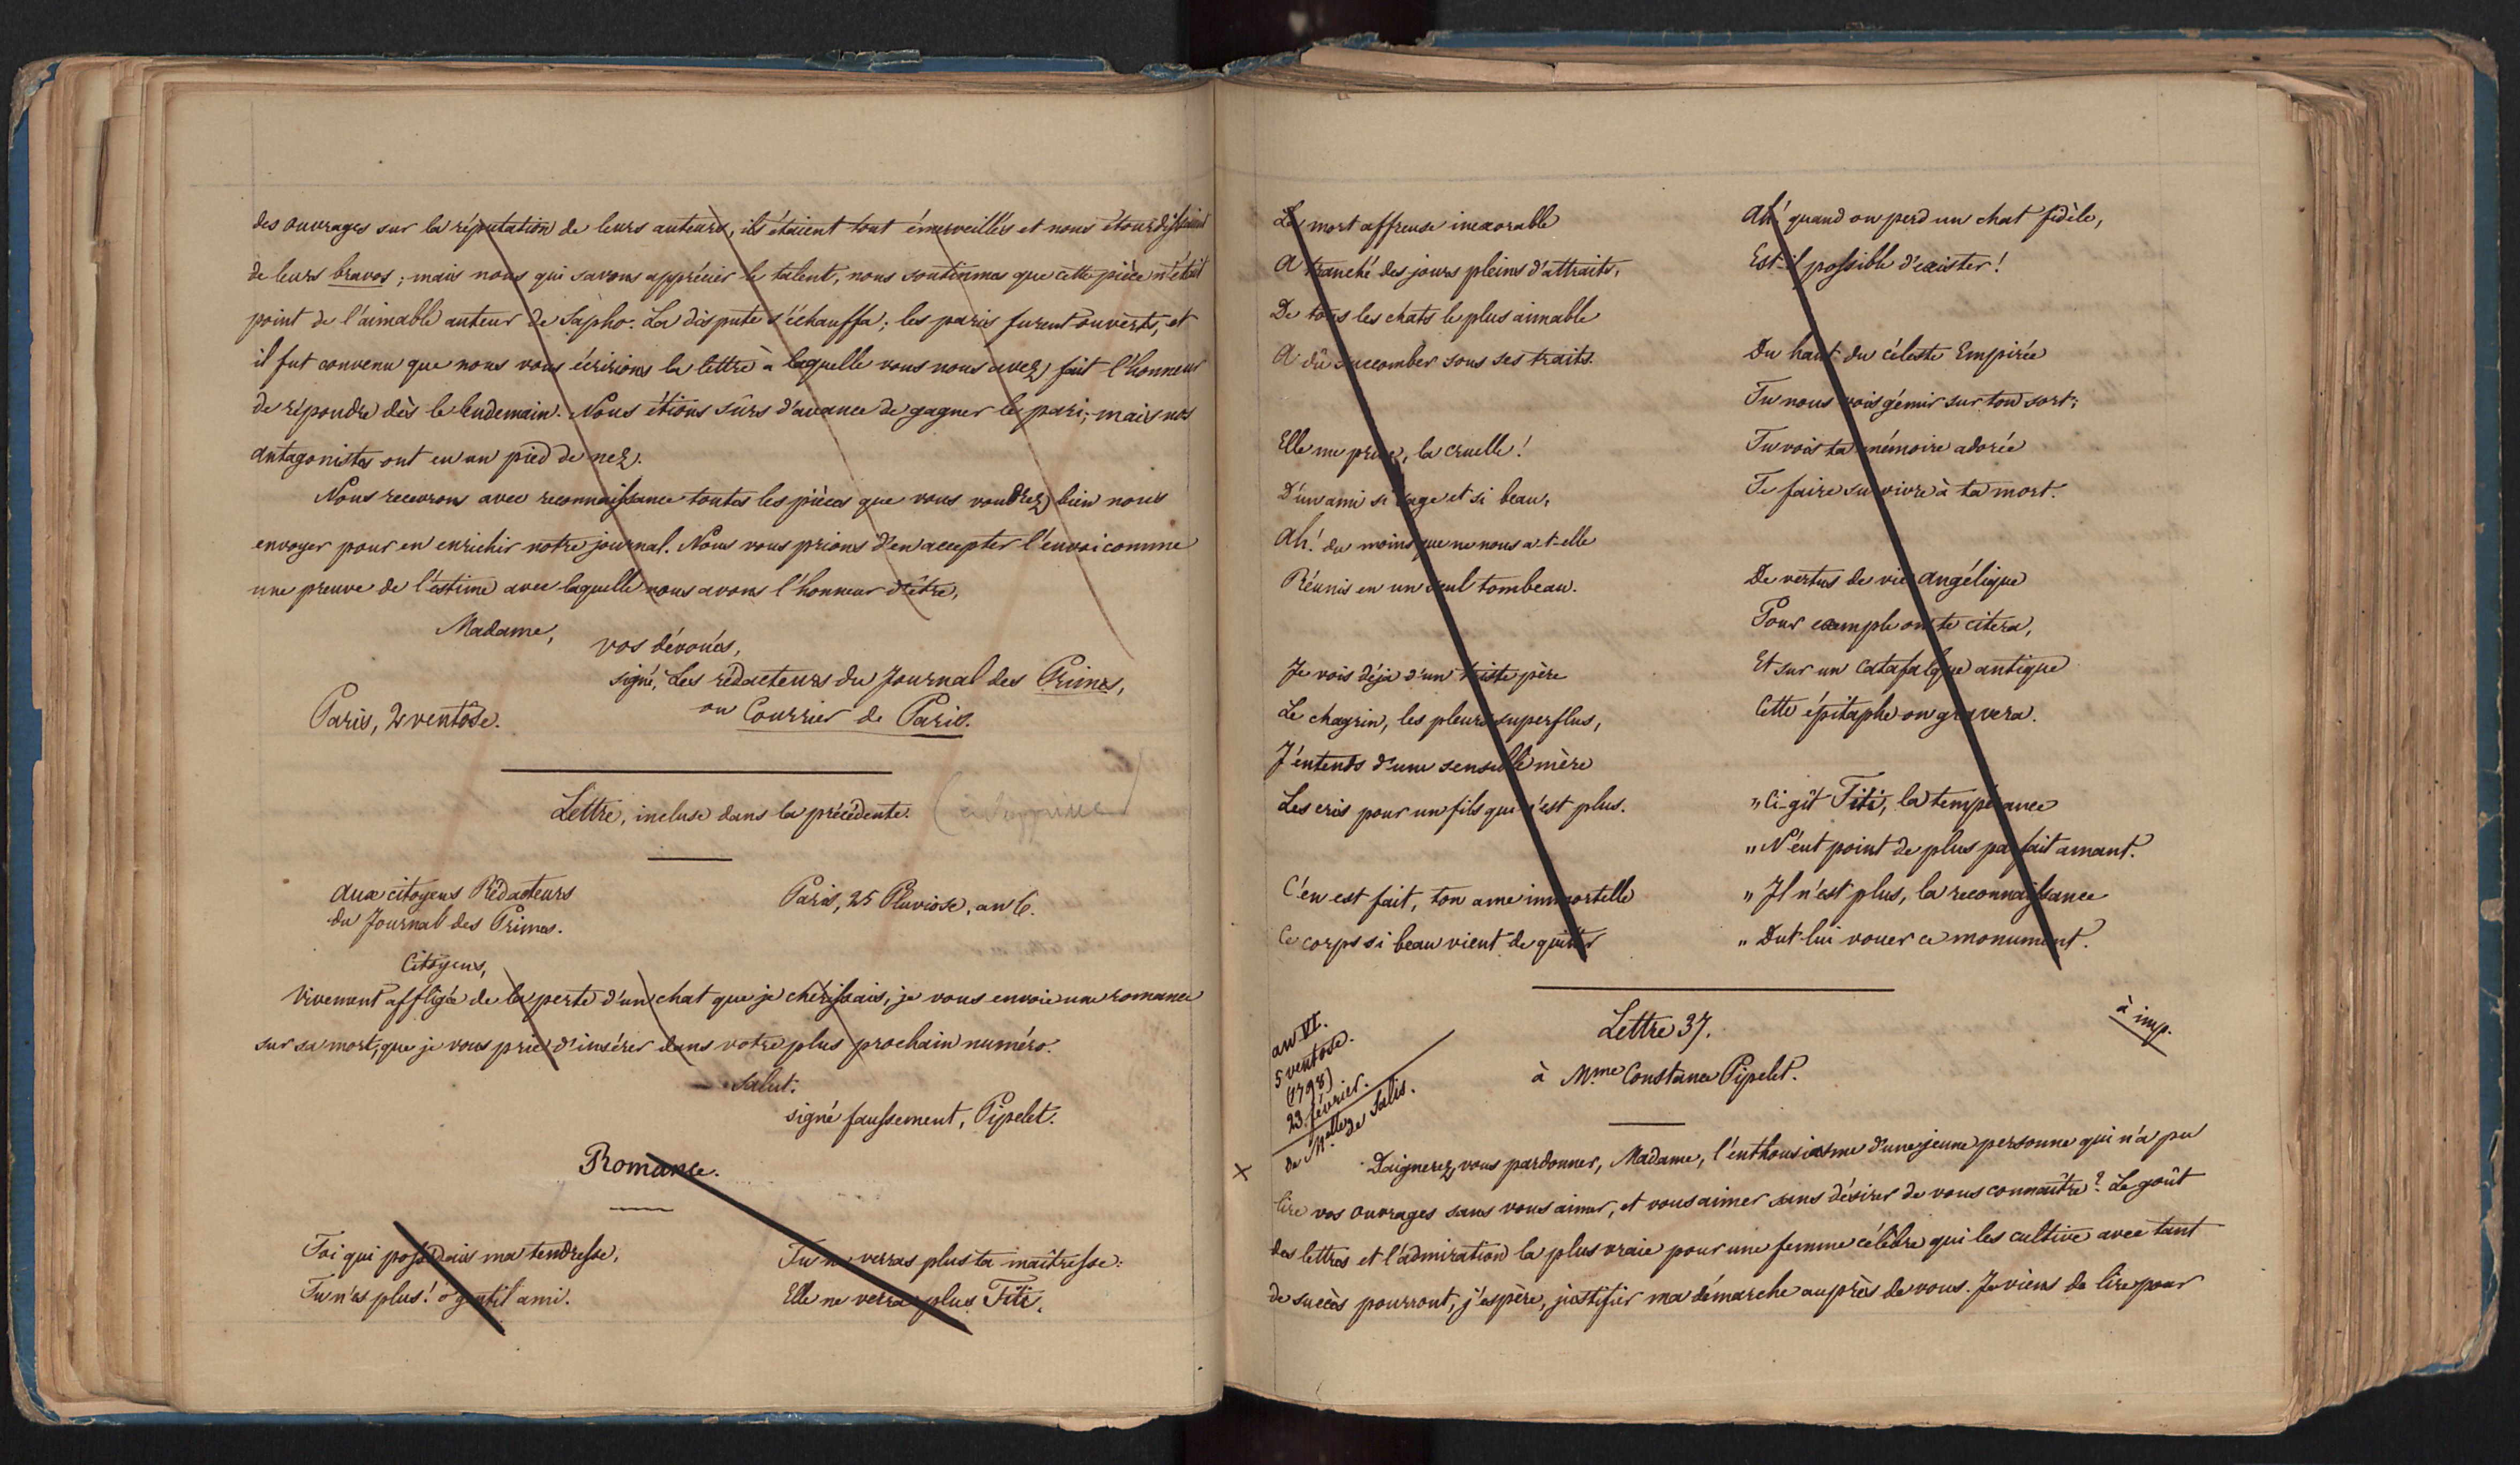 des ouvrages sur la réputation de leurs auteurs, ils étaient tout émerveillés et nous étourdissaient
de leurs bravos ; mais nous qui savons apprécier le talent, nous soutinmes que cette pièce n'était
point de l'aimable auteur de Sapho. La dispute s'échauffa ; les paris furent ouverts, et
il fut convenu que nous vous écririons la lettre à laquelle vous nous avez fait l'honneur
de répondre dès le lendemain. Nous étions sûrs d'avance de gagner le pari ; mais nos
antagonistes ont eu un pied de nez.
Nous recevrons avec reconnaissance toutes les pièces que vous voudrez bien nous
envoyer pour en enrichir notre journal. Nous vous prions d'en accepter l'envoi comme
une preuve de l'estime avec laquelle nous avons l'honneur d'être,
Madame,
vos dévoués,
signé, Les rédacteurs du Journal des Primes,
ou Courrier de Paris.
Paris, 2 ventôse.
Lettre, incluse dans la précédente. (à supprimer)
Aux citoyens Rédacteurs
du Journal des Primes.
Paris, 25 Pluviose, an 6.
Citoyens,
Vivement affligée de la perte d'un chat que je chérissais, je vous envoie une romance
sur sa mort, que je vous prie d'insérer dans votre plus prochain numéro.
Salut.
signé faussement, Pipelet.
Romance.
Toi qui possédais ma tendresse,
Tu n'es plus ! ô gentil ami.
Tu ne verras plus ta maîtresse :
Elle ne verra plus Titi.
La mort affreuse inexorable
A tranché des jours pleins d'attraits,
De tous les chats le plus aimable
A dû succomber sous ses traits.
Elle me prive, la cruelle !
D'un ami si sage et si beau,
Ah ! du moins que ne nous a-t-elle
Réunis en un seul tombeau.
Je vois déjà d'un triste père
Le chagrin, les pleurs superflus,
J'entends d'une sensible mère
Les cris pour un fils qui n'est plus.
C'en est fait, ton ame immortelle
Ce corps si beau vient de quitter
Ah ! quand on perd un chat fidèle,
Est-il possible d'exister !
Du haut du céleste Empirée
Tu nous vois gémir sur ton sort ;
Tu vois ta mémoire adorée
Te faire survivre à ta mort.
De vertus de vie angélique
Pour exemple on te citera,
Et sur un catafalque antique
Cette épitaphe on gravera.
" Ci-gît Titi, la tempérance
" N'eut point de plus parfait amant.
" Il n'est plus, la reconnaissance
" Dut lui vouer ce monument.
an VI.
5 ventose.
(1798)
23 février.
de Mlle de Salis.
Lettre 37.
à imp.
à Mme Constance Pipelet.
x Daignerez vous pardonner, Madame, l'enthousiasme d'une jeune personne qui n'a pu
lire vos ouvrages sans vous aimer, et vous aimer sans désirer de vous connaître ? Le goût
des lettres et l'admiration la plus vraie pour une femme célèbre qui les cultive avec tant
de succès pourront, j'espère, justifier ma démarche auprès de vous. Je viens de lire pour